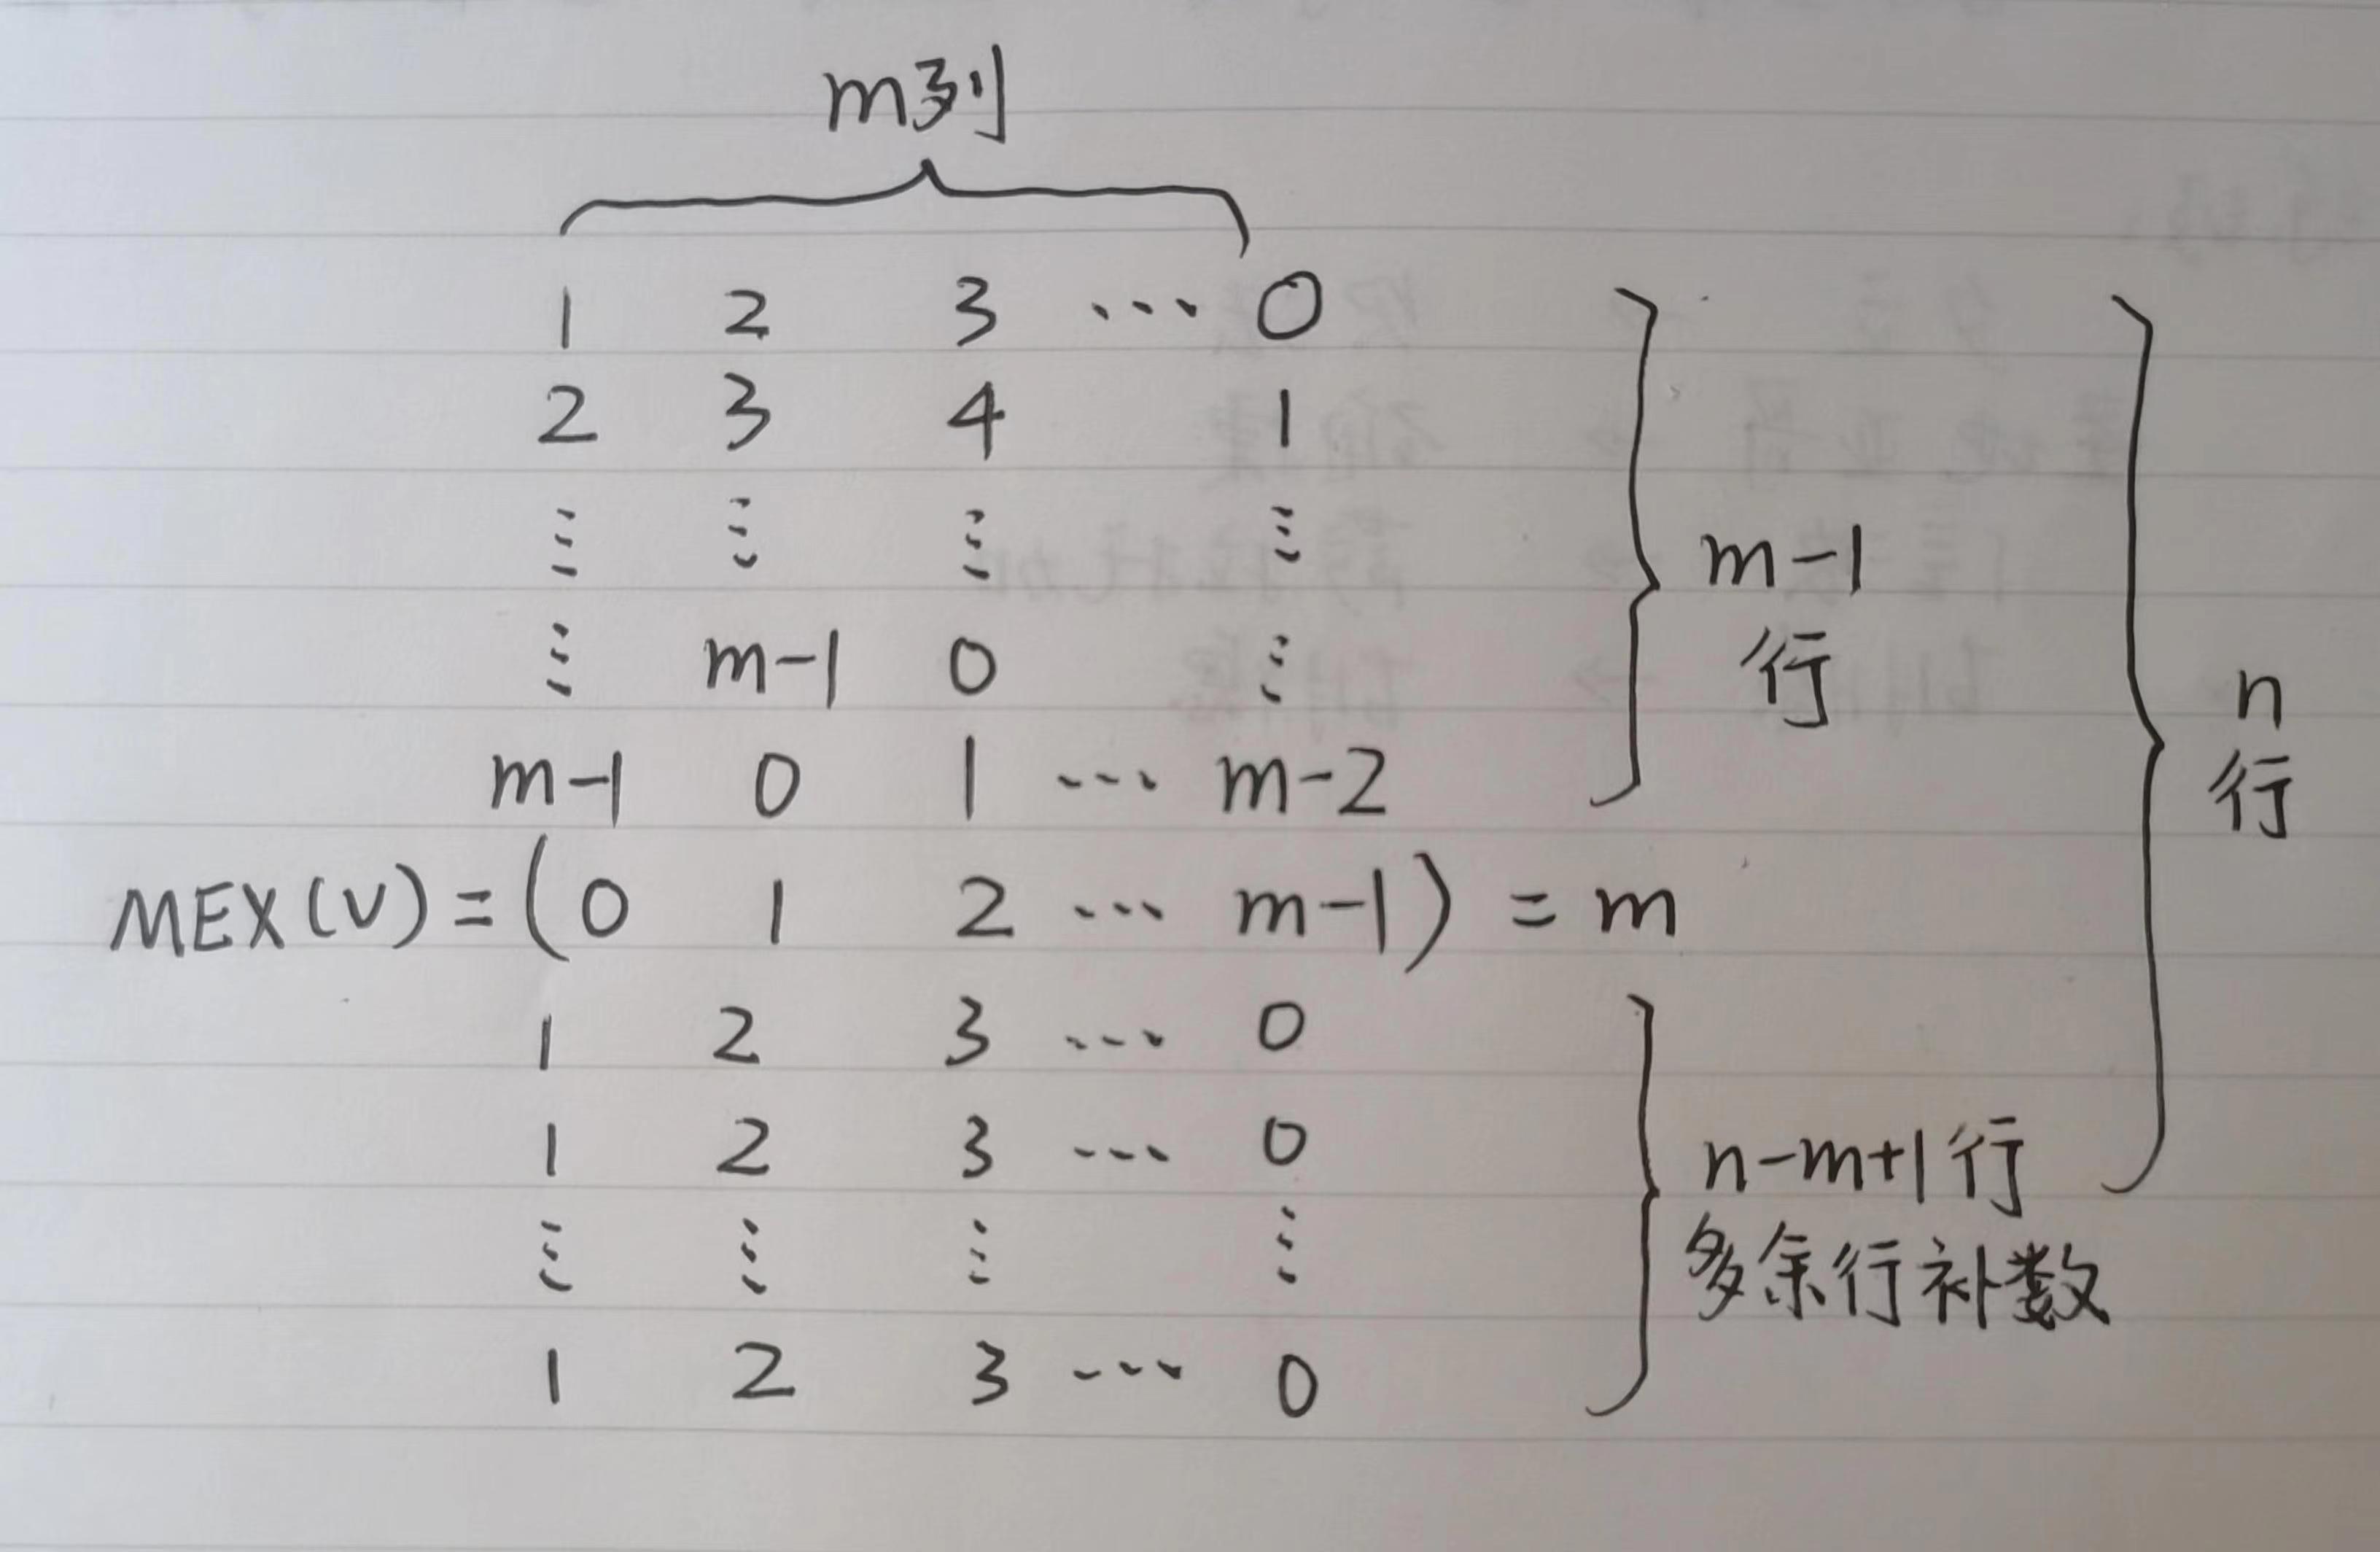 m列
1 2 3 … 0
2 3 4 1
⋮ ⋮ ⋮ ⋮
⋮ m-1 0 ⋮
m-1 0 1 … m-2
MEX(V)=(0 1 2 … m-1)=m
1 2 3 … 0
1 2 3 … 0
⋮ ⋮ ⋮ ⋮
1 2 3 … 0
m-1
行
n
行
n-m+1行
多余行补数